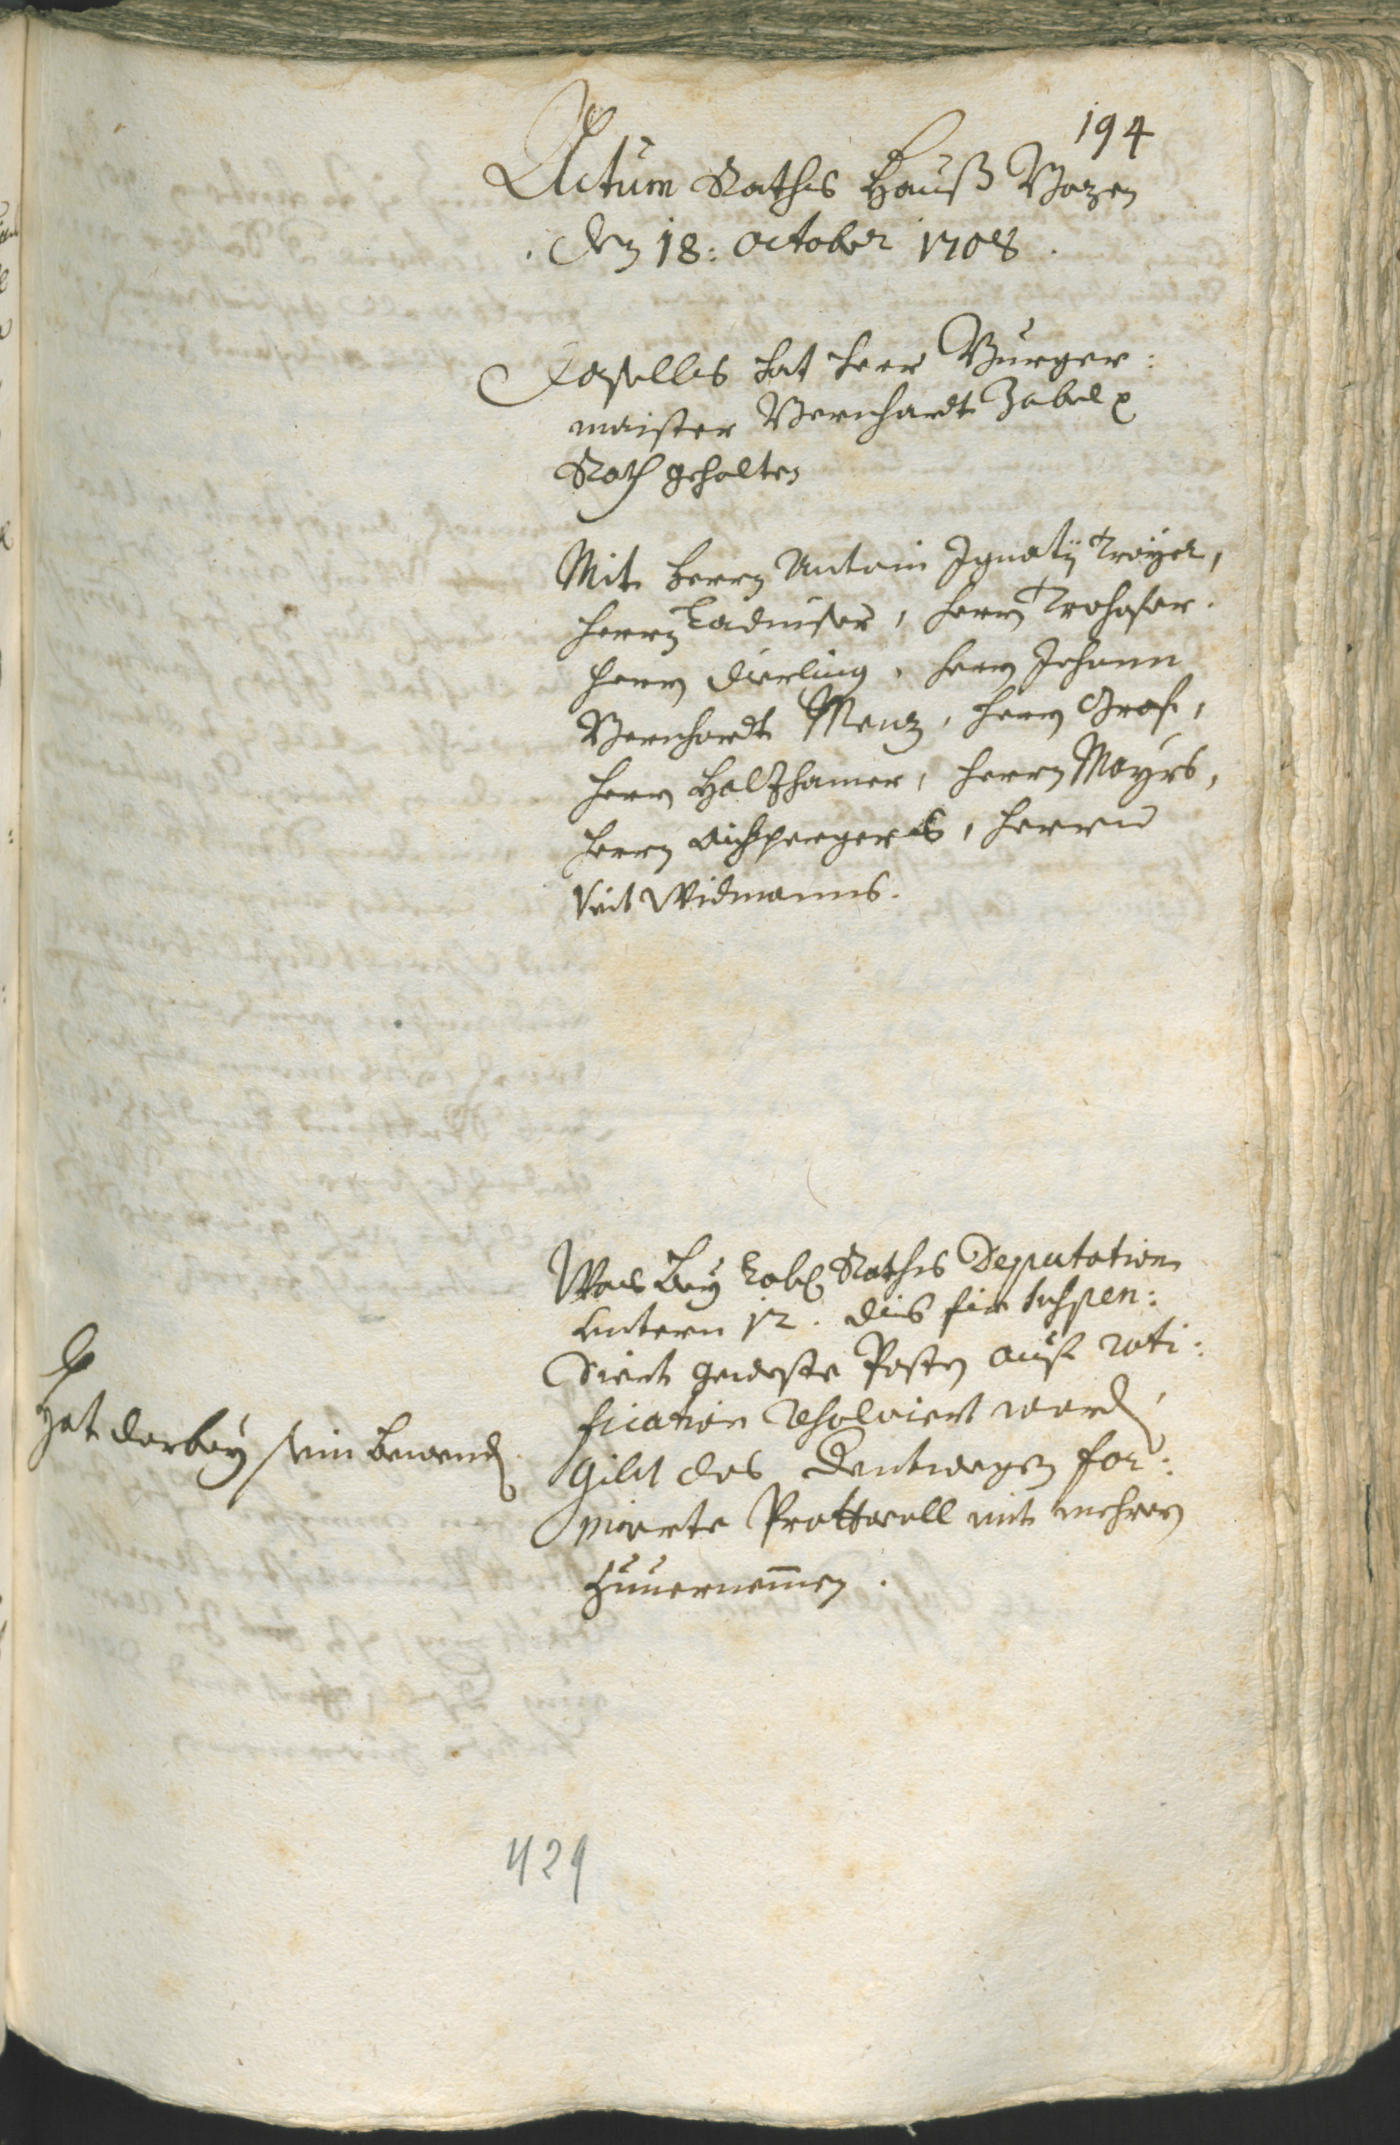 194
Actum Rathß Hauß Bozen
den 18: october 1708.
Daselbs hat herr Burger:
maister Bernhardt Zabel
Rath gehalten
Mit herrn Antoni Ignatÿ Troÿer,
herrn Ladniser, herrn Trohofer.
herrn Dierling, herrn Johann
Bernhardt Menz, herrn Graf,
herrn Holzhamer, herrn Mayrs,
herrn Aichpergers, herrn
Veit Widmanns.
Was beÿ Lobl Raths Deputation
untern 12. dis für suspen:
diert geweste Posten auf rati:
fication resolviert word
gibt das derentwegen for:
mierte Prottocoll mit mehrern
zuvernemmen.
Hat darbeÿ sein bewend
429